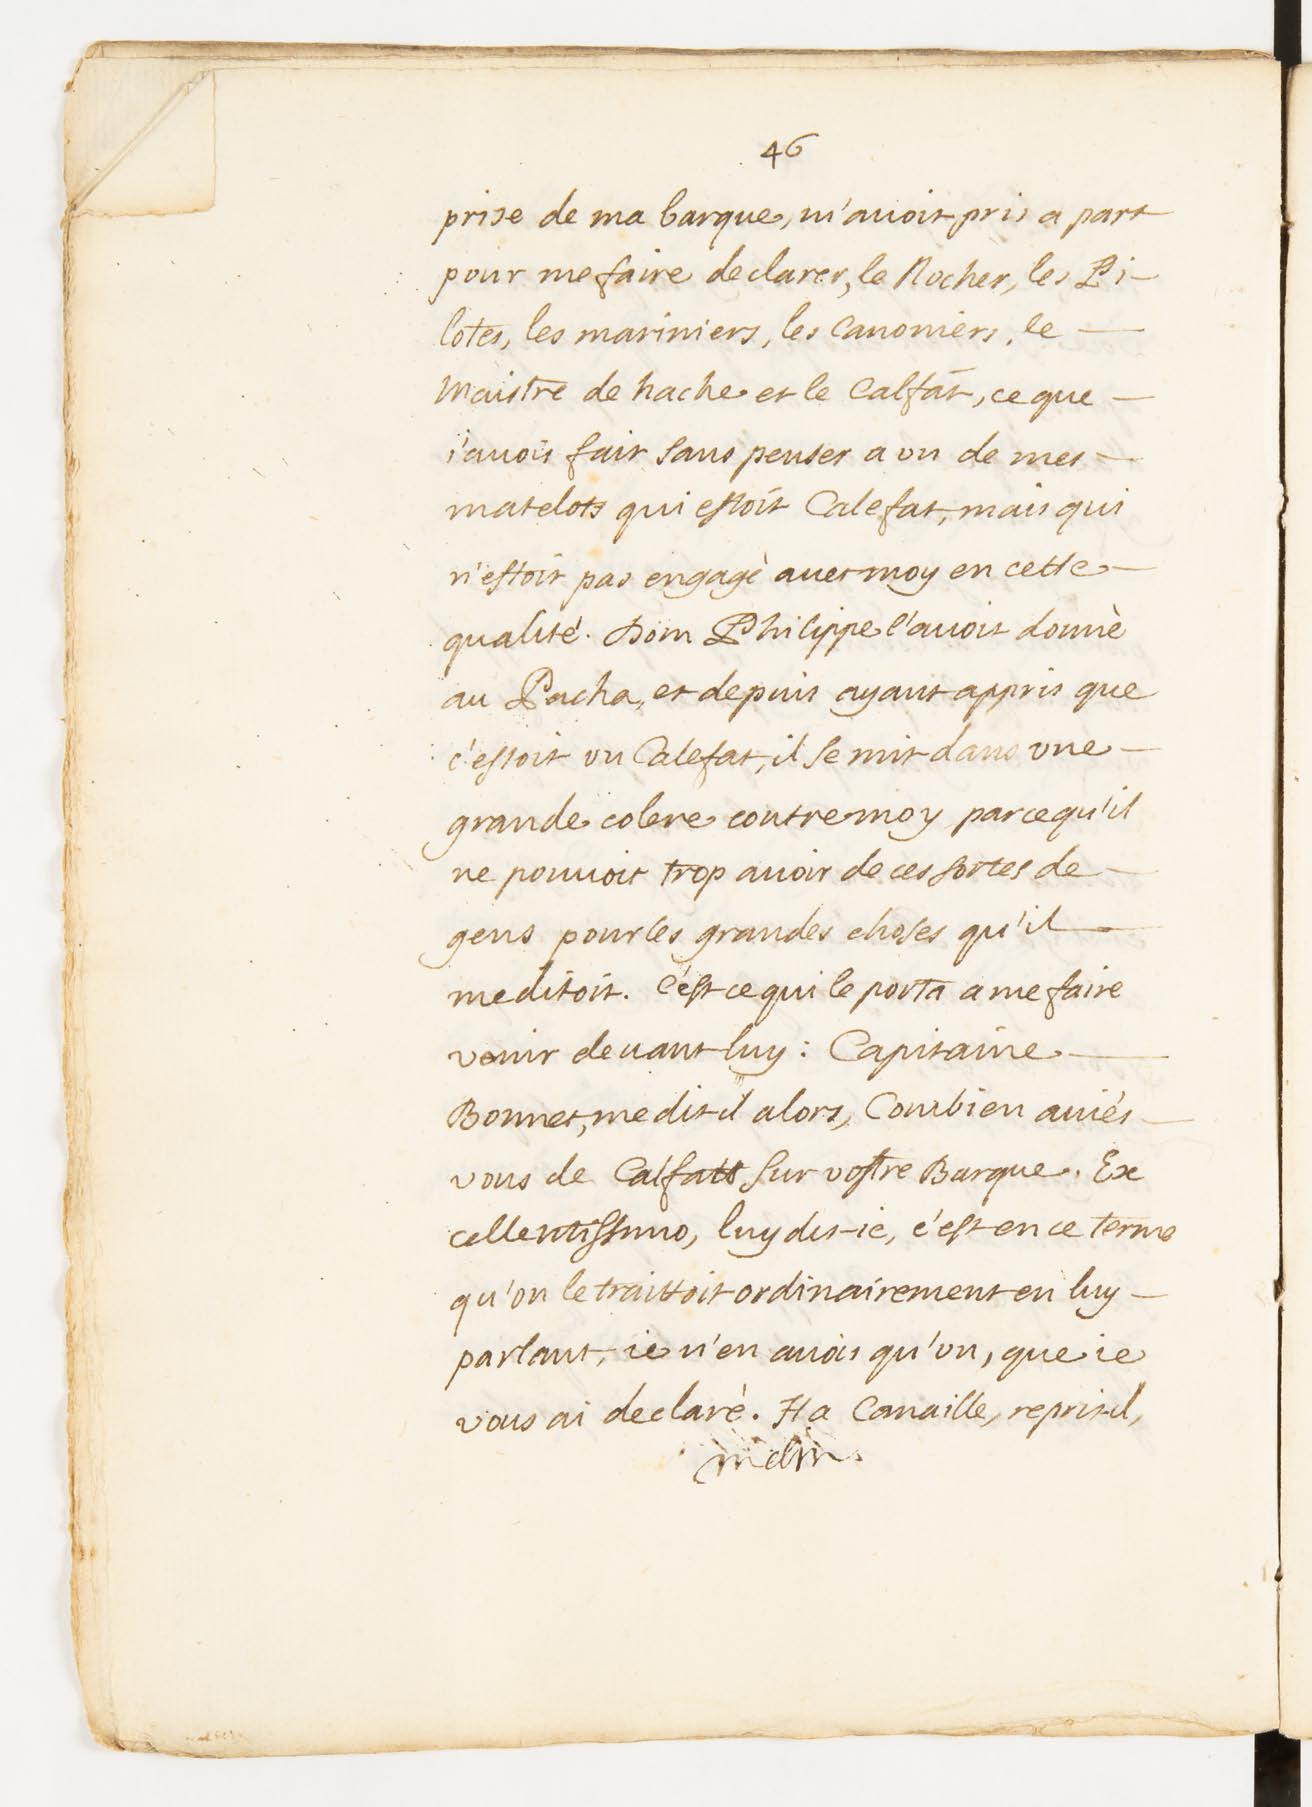 46
prise de ma barque, m'auoit pris a part
pour me faire declarer, le Nocher, les Pi-
lotes, les mariniers, les Canoniers, le
Maistre de hache et le Calfat, ce que
i'auois fait sans penser a vn de mes
matelots qui estoit Calefat, mais qui
n'estoit pas engagè auec moy en cette
qualité. Dom Philippe l'auoit donnè
au Pacha, et depuis ayant appris que
c'estoit vn Calefat, il se mit dans vne
grande colere contre moy parcequ'il
ne pouuoit trop auoir de ces sortes de
gens pour les grandes choses qu'il
meditoit. C'est ce qui le porta a me faire
venir deuant luy : Capitaine
Bonnet, me dit-il alors, Combien auiés
vous de Calfatts sur vostre Barque. Ex
cellentissimo, luy dis-ie, c'est en ce terme
qu'on le traittoit ordinairement en luy
parlant, ie n'en auois qu'vn, que ie
vous ai declarè. Ha Canaille, reprit-il,